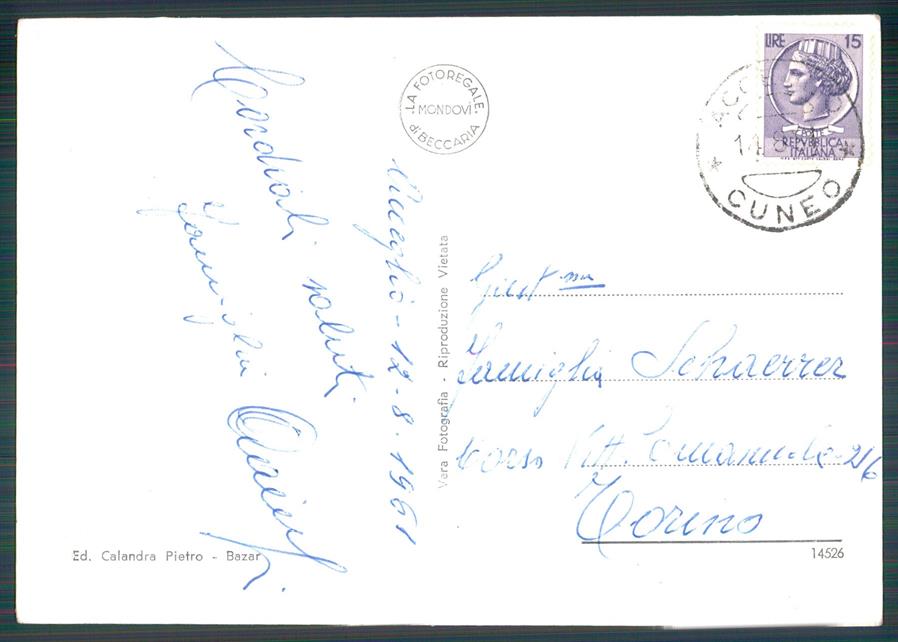 Cordiali saluti
Famiglia
12-8-1961
LA FOTOREGALE
MONDOVÌ
di BECCARIA
Vera Fotografia - Riproduzione Vietata
LIRE 15
REPVBBLICA
ITALIANA
CUNEO
Famiglia Schaerrer
Corso Vitt. Emanuele
Torino
Ed. Calandra Pietro - Bazar
14526